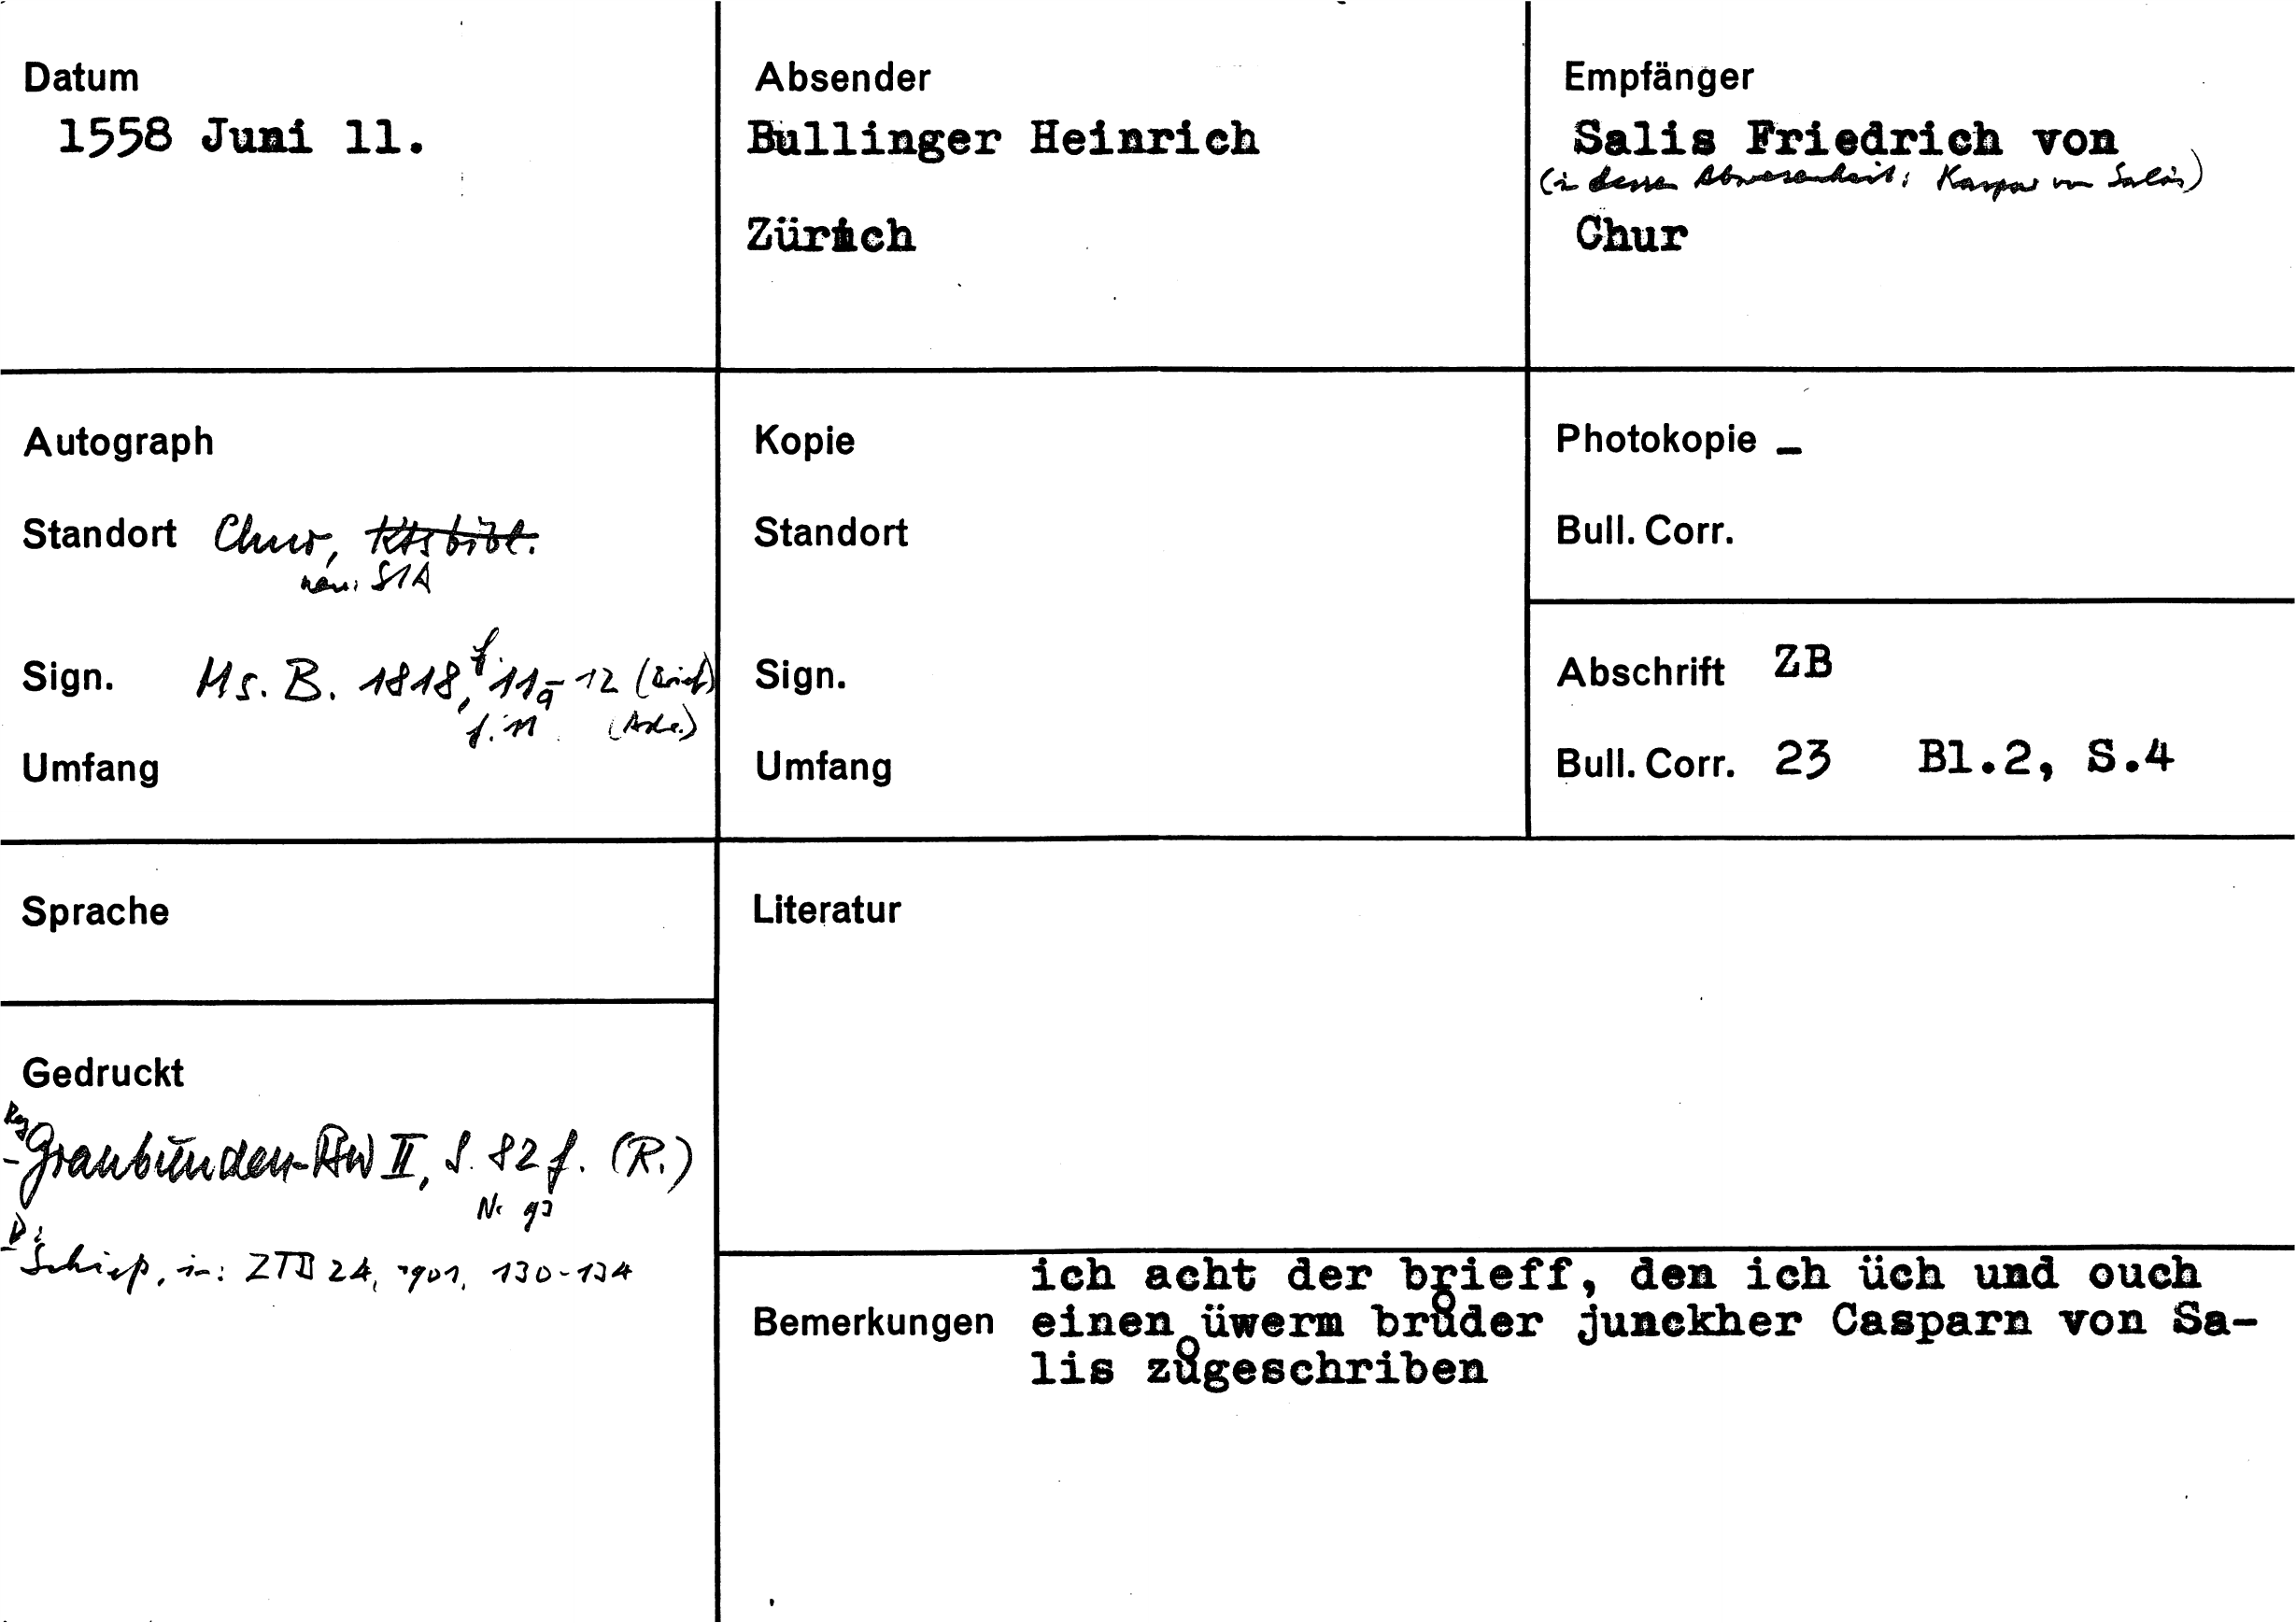 Datum
1558 Juni 11.
Absender
Bullinger Heinrich
Zürich
Empfänger
Salis Friedrich von
(in dessen Abwesenheit: Kaspar von Salis)
Chur
Autograph
Standort Chur, Ktsbibl.
neu: StA
Sign. Ms. B. 1818, f. 11a-12 (Brief)
f. 11 (Adr.)
Umfang
Kopie
Standort
Sign.
Umfang
Photokopie –
Bull. Corr.
Abschrift ZB
Bull. Corr. 23 Bl.2, S.4
Sprache
Gedruckt
Reg
- Graubünden-BW II, S. 82 f. (R.)
D:
- Schieß, in: 24, 1901, 130-134
Literatur
Bemerkungen
ich acht der brieff, den ich üch und ouch
einen üwerm brůder junckher Casparn von Sa-
lis zůgeschriben